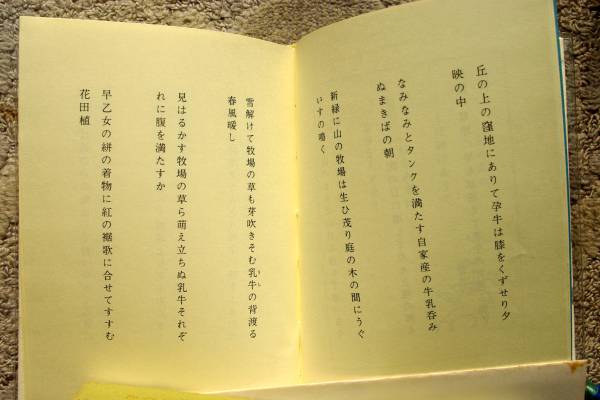 丘の上の窪地にありて孕牛は膝をくずせり夕
映の中
なみなみとタンクを満たす自家産の牛乳呑み
ぬまきばの朝
新緑に山の牧場は生ひ茂り庭の木の間にうぐ
いすの鳴く
雪解けて牧場の草も芽吹きそむ乳牛の背渡る
春風暖し
見はるかす牧場の草ら萌え立ちぬ乳牛それぞ
れに腹を満たすか
早乙女の絣の着物に紅の裾歌に合せてすすむ
花田植